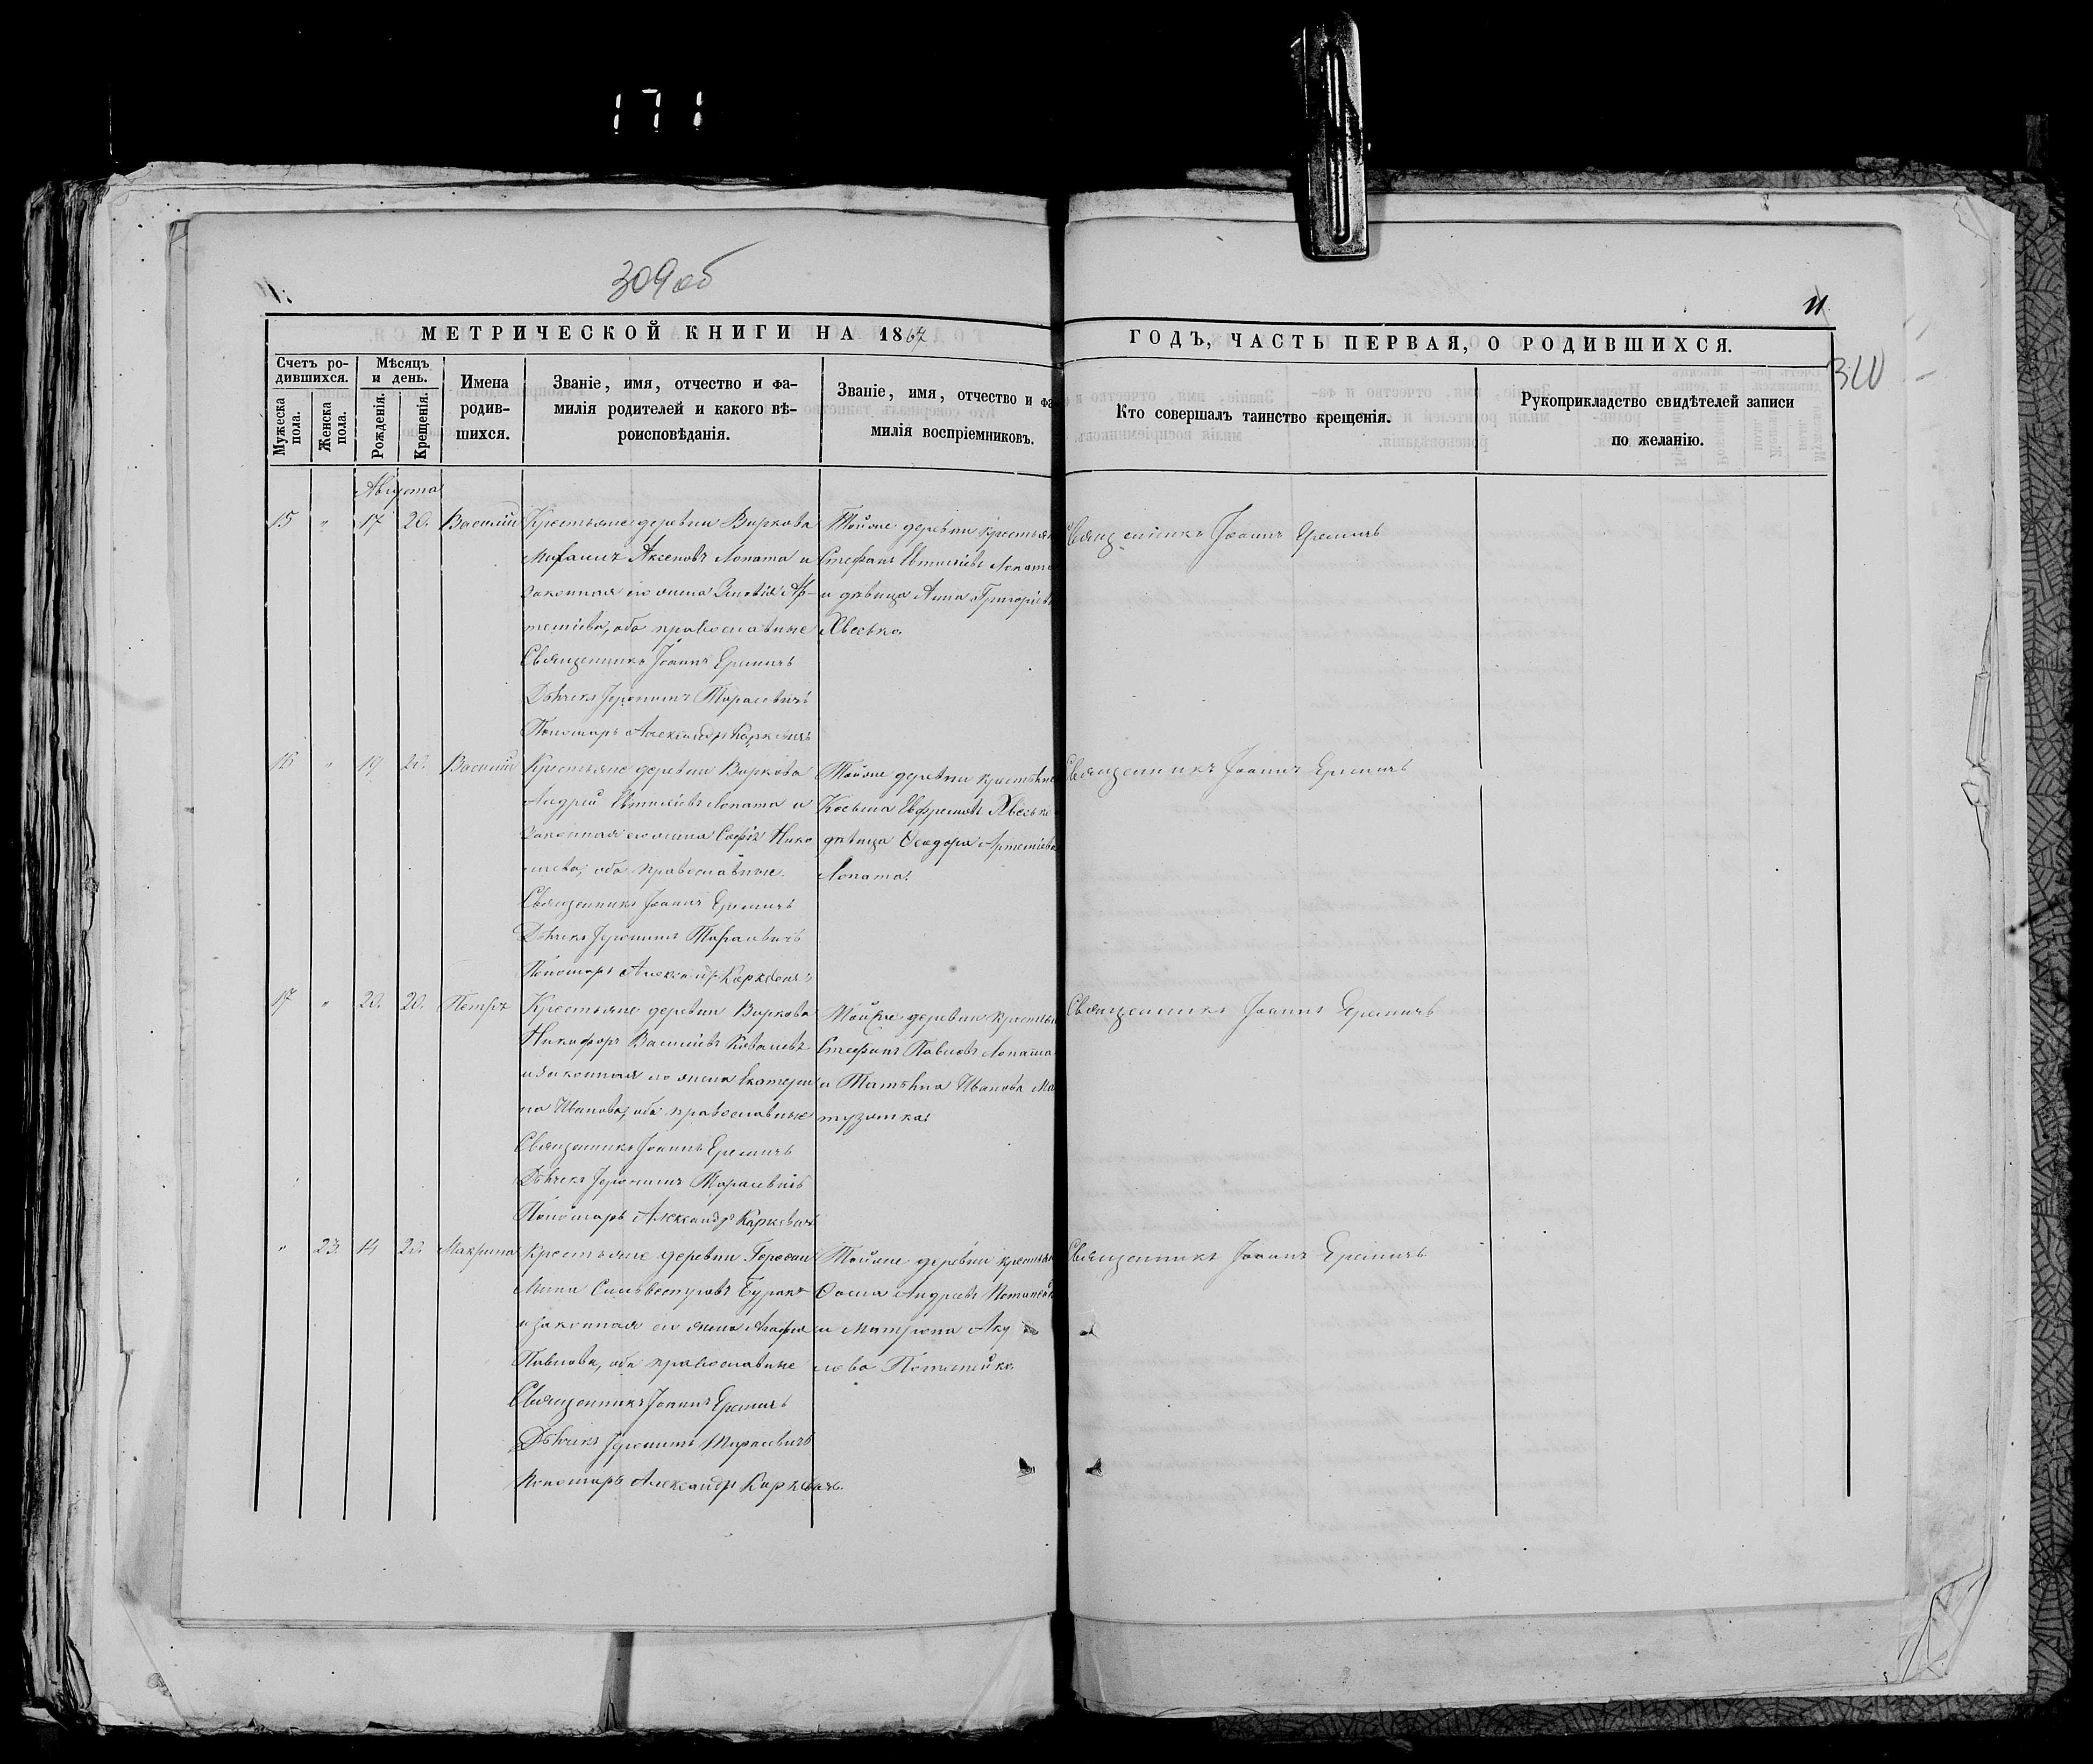 171
309 об
11
310
МЕТРИЧЕСКОЙ КНИГИ НА 1867
ГОДЪ, ЧАСТЬ ПЕРВАЯ, О РОДИВШИХСЯ.
Счетъ ро-
дившихся.
Мужеска
пола.
Женска
пола.
Мѣсяцъ
и день.
Рожденія.
Крещенія.
Имена
родив-
шихся.
Званіе, имя, отчество и фа-
милія родителей и какого вѣ-
роисповѣданія.
Званіе, имя, отчество и фа
милія воспріемниковъ.
Кто совершалъ таинство крещенія.
Рукоприкладство свидѣтелей записи
по желанію.
Августа
15 " 17 20. Василій
Крестьяне деревни Виркова
Аксеновъ Лопата и
законная его жена Ар-
темiева, оба православные
Священникъ Іоаннъ Еремичъ
Дьячекъ Іеронимъ Тарасевичъ
Пономарь Александръ
Тойже деревни крестьян
Стефанъ Евтихіевъ Лопата
и дѣвица Анна Григорiев
Хвесько.
Священникъ Іоаннъ Еремичъ
16 " 19 20. Василій
Крестьяне деревни Виркова
Андрей Евтихіевъ Лопата и
законная его жена Софія Нико
лаева, оба православные.
Священникъ Іоаннъ Еремичъ
Дьячекъ Іеронимъ Тарасевичъ
Пономарь Александръ
Тойже деревни крестьяне
Косьма Ефремовъ Хвесько
дѣвица Ѳеодора Артемiева
Лопата.
Священникъ Іоаннъ Еремичъ
17 " 20. 20. Петръ
Крестьяне деревни Виркова
Никифоръ Василіевъ Ковалевъ
и законная его жена Екатери
на Иванова, оба православные
Священникъ Іоаннъ Еремичъ
Дьячекъ Іеронимъ Тарасевичъ
Пономарь Александръ
Тойже деревни крестьян
Стефанъ Павловъ Лопата
и Татьяна Иванова Ма
тузятка.
Священникъ Іоаннъ Еремичъ
" 23. 14 20. Макрина
Крестьяне деревни
Мина Сильвестровъ Буракъ
и законная его жена Агафія
Павлова, оба православные
Священникъ Іоаннъ Еремичъ
Дьячекъ Іеронимъ Тарасевичъ
Пономарь Александръ
Тойже деревни крестьян
Ѳома Андреевъ Потапейк
и Матрона Аку
лова Потапейко
Священникъ Іоаннъ Еремичъ